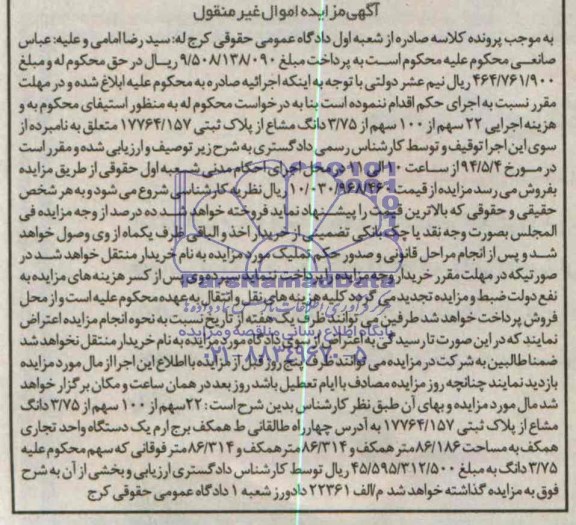 آگهی مزایده اموال غیر منقول
به موجب پرونده کلاسه صادره از شعبه اول دادگاه عمومی حقوقی کرج له: سید رضا امامی و علیه: عباس
صانعی محکوم علیه محکوم است به پرداخت مبلغ ۹/۵۰۸/۱۳۸/۰۹۰ ریال در حق محکوم له و مبلغ
۴۶۴/۷۶۱/۹۰۰ ریال نیم عشر دولتی با توجه به اینکه اجرائیه صادره به محکوم علیه ابلاغ شده و در مهلت
مقرر نسبت به اجرای حکم اقدام ننموده است بنا به درخواست محکوم له به منظور استیفای محکوم به و
هزینه اجرایی ۲۲ سهم از ۱۰۰ سهم از ۳/۷۵ دانگ مشاع از پلاک ثبتی ۱۷۷۶۴/۱۵۷ متعلق به نامبرده از
سوی این اجرا توقیف و توسط کارشناس رسمی دادگستری به شرح زیر توصیف و ارزیابی شده و مقرر است
در مورخ ۹۴/۵/۴ از ساعت ۱۰ الی ۱۱ در محل اجرای احکام مدنی شعبه اول حقوقی از طریق مزایده
بفروش می رسد مزایده از قیمت ۱۰/۰۳۰/۹۶۸/۴۶۰ ریال نظریه کارشناسی شروع می شود و به هر شخص
حقیقی و حقوقی که بالاترین قیمت را پیشنهاد نماید فروخته خواهد شد ده درصد از وجه مزایده فی
المجلس بصورت وجه نقد یا چک بانکی تضمینی از خریدار اخذ و الباقی ظرف یکماه از وی وصول خواهد
شد و پس از انجام مراحل قانونی و صدور حکم تملیک مورد مزایده به نام خریدار منتقل خواهد شد در
صورتیکه در مهلت مقرر خریدار وجه مزایده را پرداخت ننماید سپرده وی پس از کسر هزینه های مزایده به
نفع دولت ضبط و مزایده تجدید می گردد کلیه هزینه های نقل و انتقال به عهده محکوم علیه است و از محل
فروش پرداخت خواهد شد طرفین می توانند ظرف یک هفته از تاریخ نسبت به نحوه انجام مزایده اعتراض
نمایند که در این صورت تا رسیدگی به اعتراض از سوی دادگاه مورد مزایده به نام خریدار منتقل نخواهد شد
ضمنا طالبین به شرکت در مزایده می توانند ظرف پنج روز قبل از مزایده با اطلاع این اجرا از مال مورد مزایده
بازدید نمایند چنانچه روز مزایده مصادف با ایام تعطیل باشد روز بعد در همان ساعت و مکان برگزار خواهد
شد مال مورد مزایده و بهای آن طبق نظر کارشناس بدین شرح است: ۲۲ سهم از ۱۰۰ سهم از ۳/۷۵ دانگ
مشاع از پلاک ثبتی ۱۷۷۶۴/۱۵۷ به آدرس چهارراه طالقانی ط همکف برج ارم یک دستگاه واحد تجاری
همکف به مساحت ۸۶/۱۸۶ متر همکف و ۸۶/۳۱۴ متر همکف و ۸۶/۳۱۴ متر فوقانی که سهم محکوم علیه
۳/۷۵ دانگ به مبلغ ۴۵/۵۹۵/۳۱۲/۵۰۰ ریال توسط کارشناس دادگستری ارزیابی و بخشی از آن به شرح
فوق به مزایده گذاشته خواهد شد م/الف ۲۲۳۶۱ دادورز شعبه ۱ دادگاه عمومی حقوقی کرج
ParsNamadData
پایگاه اطلاع رسانی مناقصه و مزایده
۰۲۱-۸۸۳۴۹۶۷۰-۵